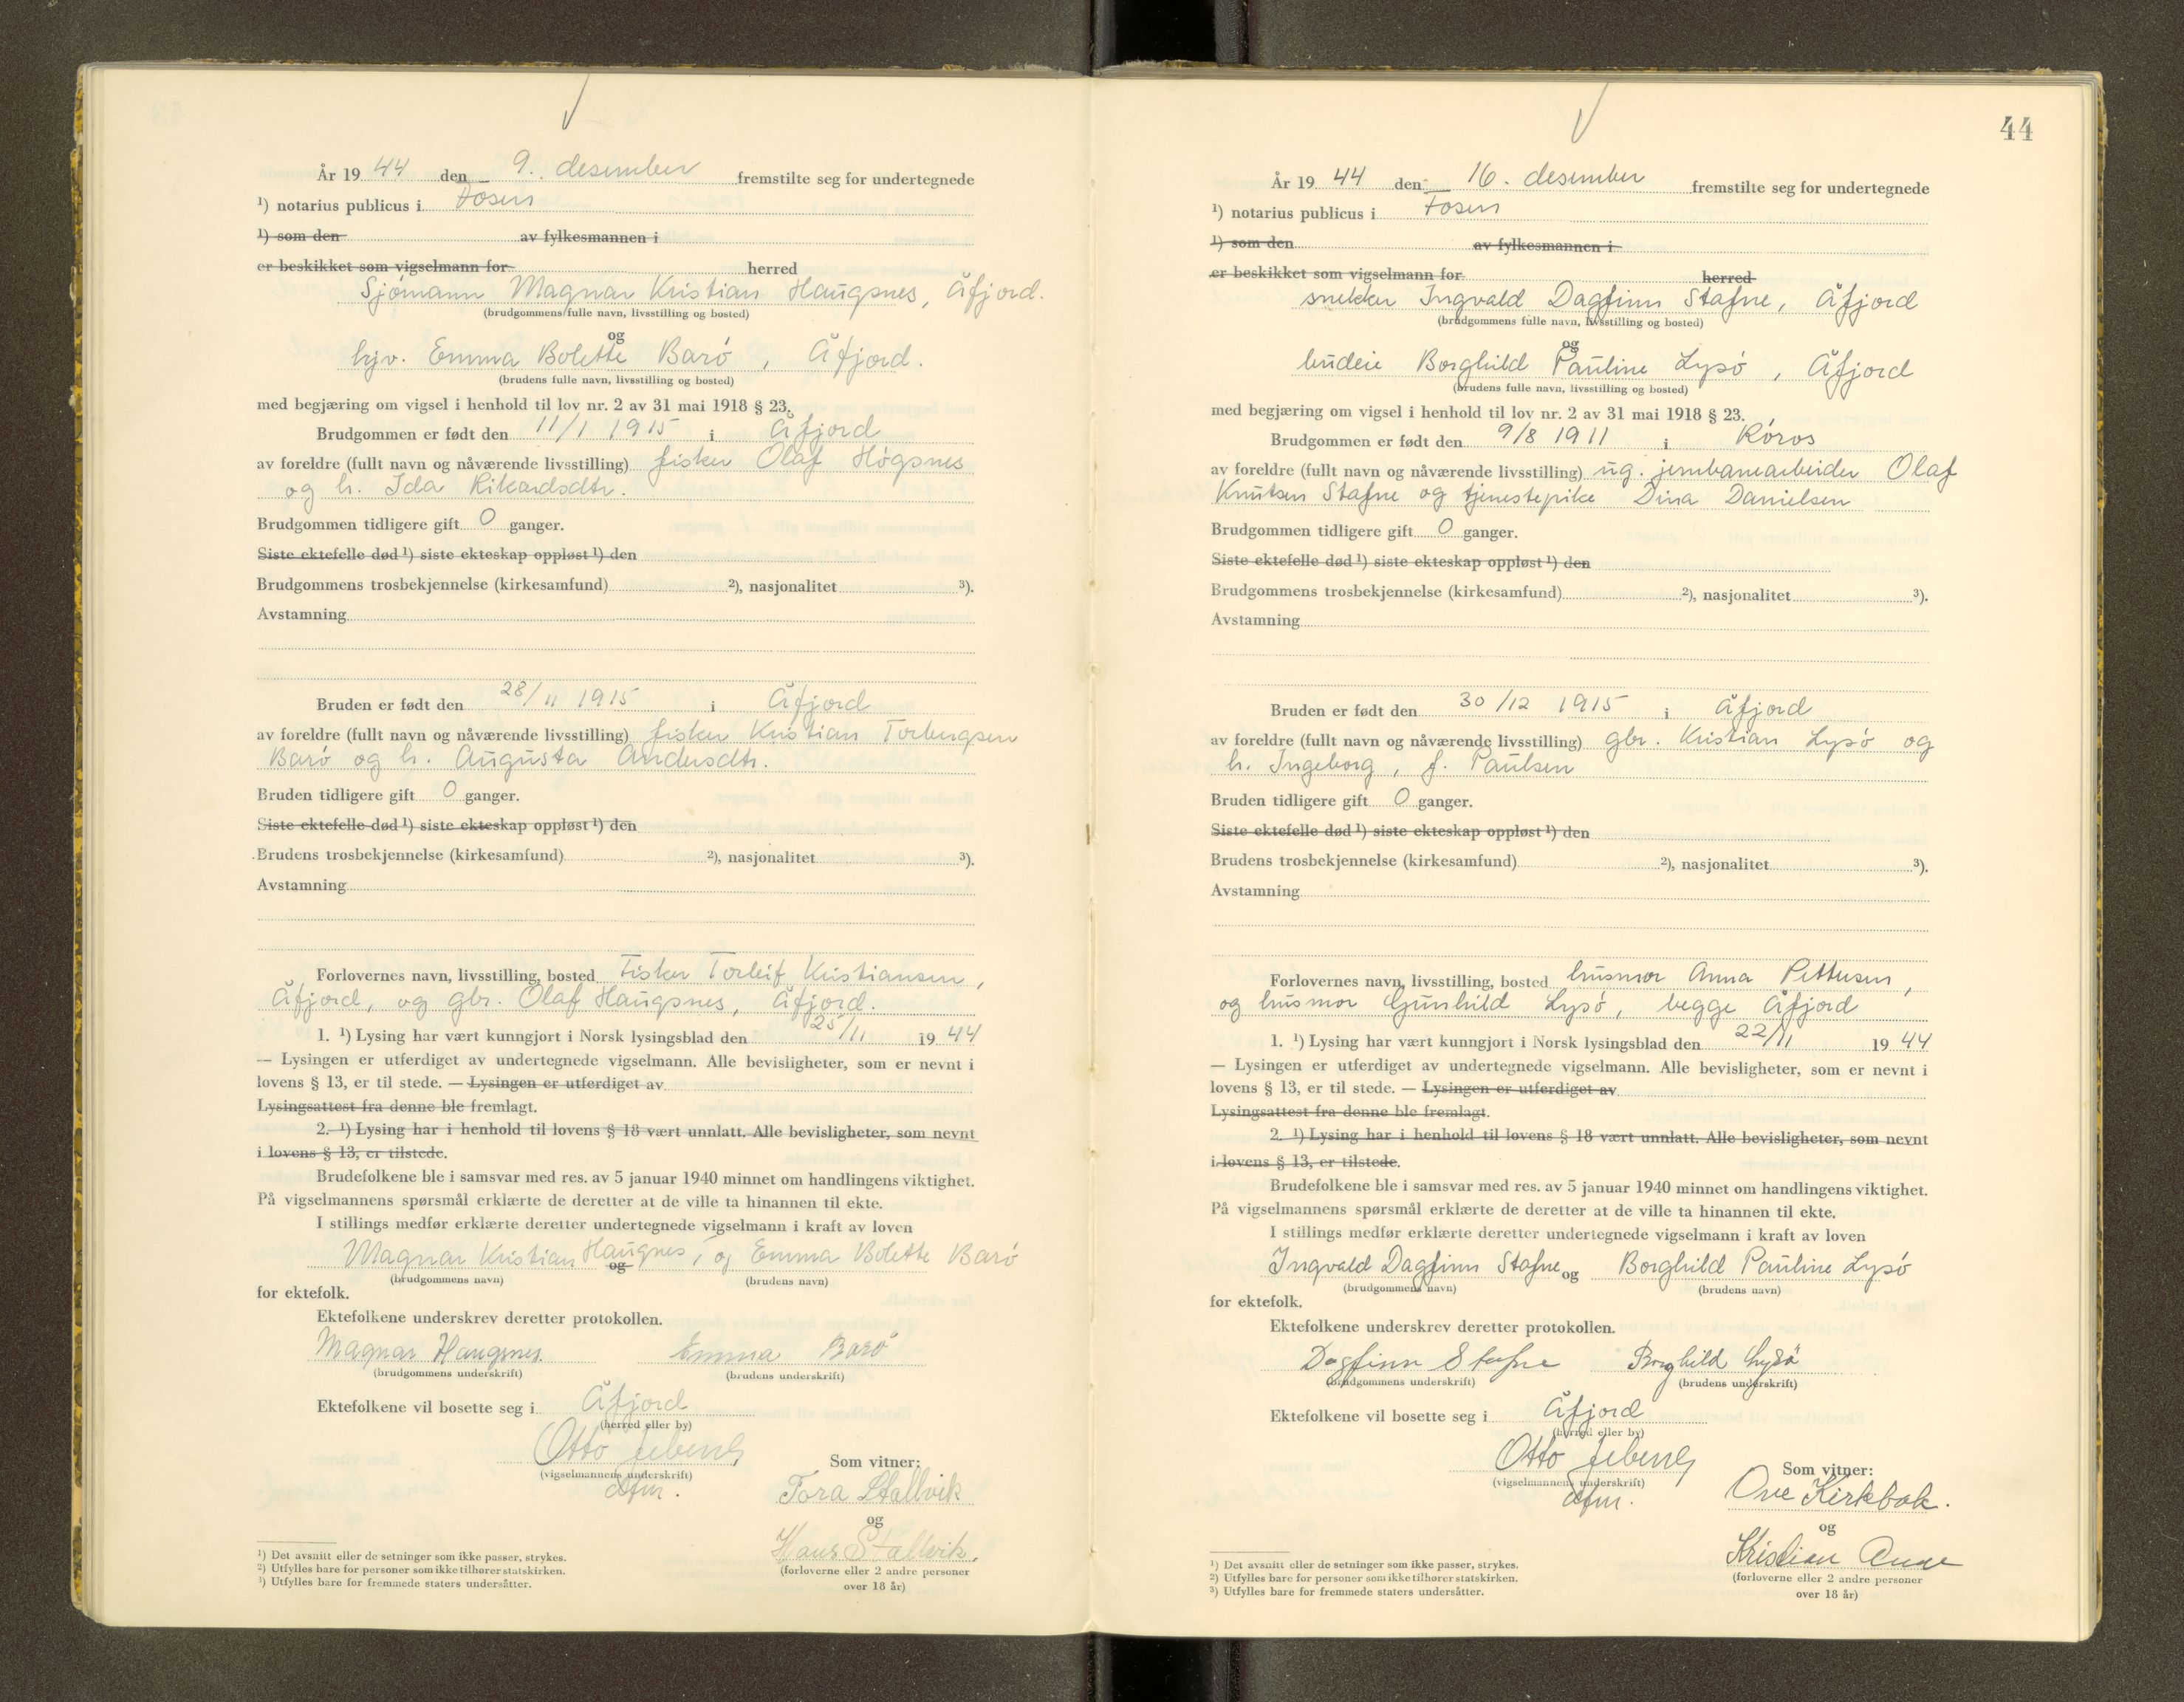 År 19 44 den 9. desember fremstilte seg for undertegnede
¹) notarius publicus i Fosen
¹) som den av fylkesmannen i
er beskikket som vigselmann for herred
Sjømann Magnar Kristian Haugsnes, Åfjord.
(brudgommens fulle navn, livsstilling og bosted)
og
hjv. Emma Bolette Barø, Åfjord.
(brudens fulle navn, livsstilling og bosted)
med begjæring om vigsel i henhold til lov nr. 2 av 31 mai 1918 § 23.
Brudgommen er født den 11/1 1915 i Åfjord
av foreldre (fullt navn og nåværende livsstilling) fisker Olaf Høgsnes
og h. Ida Rikardsdtr.
Brudgommen tidligere gift 0 ganger.
Siste ektefelle død ¹) siste ekteskap oppløst ¹) den
Brudgommens trosbekjennelse (kirkesamfund) ²), nasjonalitet ³).
Avstamning
Bruden er født den 28/11 1915 i Åfjord
av foreldre (fullt navn og nåværende livsstilling) fisker Kristian Torbergsen
Barø og h. Augusta Andersdtr.
Bruden tidligere gift 0 ganger.
Siste ektefelle død ¹) siste ekteskap oppløst ¹) den
Brudens trosbekjennelse (kirkesamfund) ²), nasjonalitet ³).
Avstamning
Forlovernes navn, livsstilling, bosted Fisker Torleif Kristiansen,
Åfjord, og gbr. Olaf Haugsnes, Åfjord.
1. ¹) Lysing har vært kunngjort i Norsk lysingsblad den 25/11 19 44
— Lysingen er utferdiget av undertegnede vigselmann. Alle bevisligheter, som er nevnt i
lovens § 13, er til stede. — Lysingen er utferdiget av
Lysingsattest fra denne ble fremlagt.
2. ¹) Lysing har i henhold til lovens § 18 vært unnlatt. Alle bevisligheter, som nevnt
i lovens § 13, er tilstede.
Brudefolkene ble i samsvar med res. av 5 januar 1940 minnet om handlingens viktighet.
På vigselmannens spørsmål erklærte de deretter at de ville ta hinannen til ekte.
I stillings medfør erklærte deretter undertegnede vigselmann i kraft av loven
Magnar Kristian Haugnes, og Emma Bolette Barø
og
(brudgommens navn) (brudens navn)
for ektefolk.
Ektefolkene underskrev deretter protokollen.
Magnar Haugsnes. Emma Barø
(brudgommens underskrift) (brudens underskrift)
Ektefolkene vil bosette seg i Åfjord
(herred eller by)
Otto
(vigselmannens underskrift)
Som vitner:
Tora Stallvik
og
Hans Stallvik.
(forloverne eller 2 andre personer
over 18 år)
¹) Det avsnitt eller de setninger som ikke passer, strykes.
²) Utfylles bare for personer som ikke tilhører statskirken.
³) Utfylles bare for fremmede staters undersåtter.
44
År 19 44 den 16. desember fremstilte seg for undertegnede
¹) notarius publicus i Fosen
¹) som den av fylkesmannen i
er beskikket som vigselmann for herred
snekker Ingvald Dagfinn Stafne, Åfjord
(brudgommens fulle navn, livsstilling og bosted)
og
budeie Borghild Pauline Lysø, Åfjord
(brudens fulle navn, livsstilling og bosted)
med begjæring om vigsel i henhold til lov nr. 2 av 31 mai 1918 § 23.
Brudgommen er født den 9/8 1911 i Røros
av foreldre (fullt navn og nåværende livsstilling) ug. jernbanearbeider Olaf
Knutsen Stafne og tjenestepike Dina Danielsen
Brudgommen tidligere gift 0 ganger.
Siste ektefelle død ¹) siste ekteskap oppløst ¹) den
Brudgommens trosbekjennelse (kirkesamfund) ²), nasjonalitet ³).
Avstamning
Bruden er født den 30/12 1915 i Åfjord
av foreldre (fullt navn og nåværende livsstilling) gbr. Kristian Lysø og
h. Ingeborg, f. Paulsen
Bruden tidligere gift 0 ganger.
Siste ektefelle død ¹) siste ekteskap oppløst ¹) den
Brudens trosbekjennelse (kirkesamfund) ²), nasjonalitet ³).
Avstamning
Forlovernes navn, livsstilling, bosted husmor Anna Pettersen,
og husmor Gunhild Lysø, begge Åfjord
1. ¹) Lysing har vært kunngjort i Norsk lysingsblad den 22/11 19 44
— Lysingen er utferdiget av undertegnede vigselmann. Alle bevisligheter, som er nevnt i
lovens § 13, er til stede. — Lysingen er utferdiget av
Lysingsattest fra denne ble fremlagt.
2. ¹) Lysing har i henhold til lovens § 18 vært unnlatt. Alle bevisligheter, som nevnt
i lovens § 13, er tilstede.
Brudefolkene ble i samsvar med res. av 5 januar 1940 minnet om handlingens viktighet.
På vigselmannens spørsmål erklærte de deretter at de ville ta hinannen til ekte.
I stillings medfør erklærte deretter undertegnede vigselmann i kraft av loven
Ingvald Dagfinn Stafne og Borghild Pauline Lysø
(brudgommens navn) (brudens navn)
for ektefolk.
Ektefolkene underskrev deretter protokollen.
Dagfinn Stafne Borghild Lysø
(brudgommens underskrift) (brudens underskrift)
Ektefolkene vil bosette seg i Åfjord
(herred eller by)
Otto
(vigselmannens underskrift)
Som vitner:
Ove Kirkbak.
og
Kristian Aune
(forloverne eller 2 andre personer
over 18 år)
¹) Det avsnitt eller de setninger som ikke passer, strykes.
²) Utfylles bare for personer som ikke tilhører statskirken.
³) Utfylles bare for fremmede staters undersåtter.